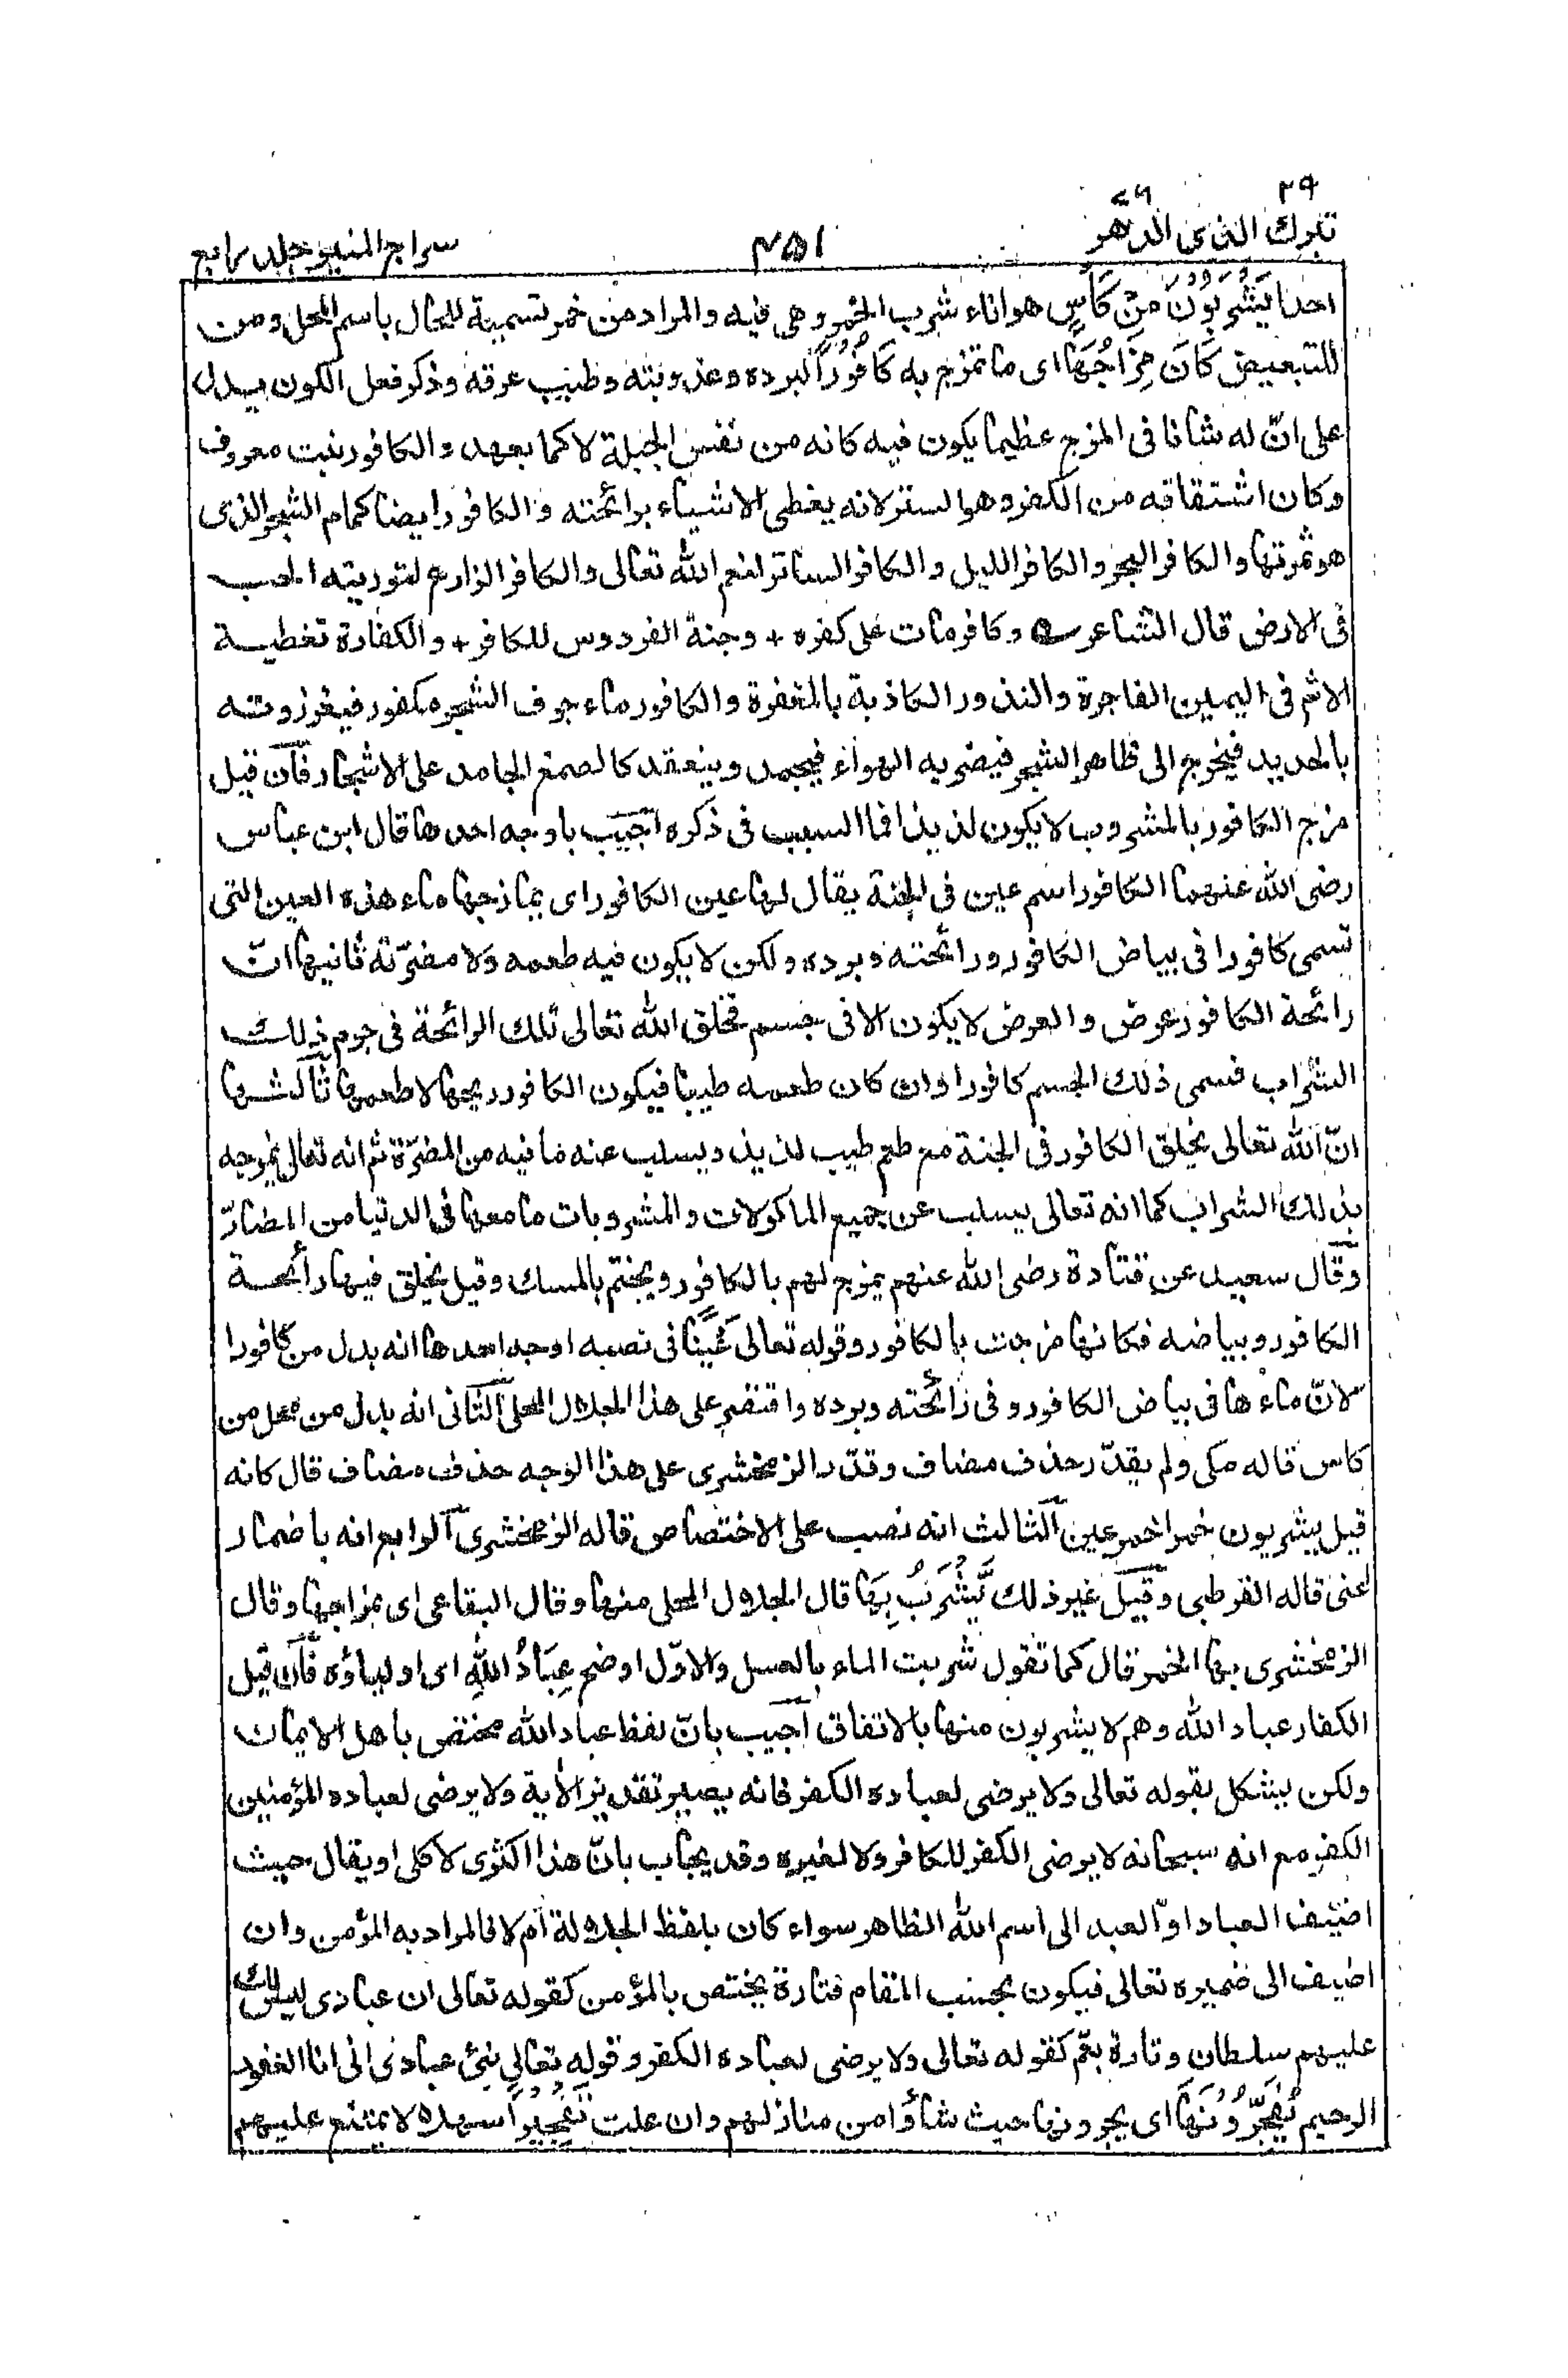 ٢٩ ٧٦
تبرك الذى الدهر ٤٥١ سراج المنير جلد رابع
احدا يَشْرَبُوْنَ مِنْ كَأْسٍ هو اناء شرب الخمر وهى فيه والمراد من خمر تسمية للحال باسم المحل ومن
للتبعيض كَانَ مِزَاجُهَا اى ما تمزج به كَافُوْرًا لبرده وعذوبته وطيب عرقه وذكر فعل الكون يدل
على انّ له شانا فى المزج عظيما يكون فيه كانه من نفس الجبلة لا كما يعهد والكافور نبت معروف
وكان اشتقاقه من الكفر وهو الستر لانه يغطى الاشياء برائحته والكافور ايضا كمام الشجر الذى
هو ثمرتها والكافر البحر والكافر الليل والكافر الساتر لنعم الله تعالى والكافر الزارع لتوريته الحب
فى الارض قال الشاعر وكافر مات على كفره + وجنة الفردوس للكافر + والكفارة تغطية
الاثم فى اليمين الفاجرة والنذور الكاذبة بالمغفرة والكافور ماء جوف الشجره مكفور فيغرزونه
بالحديد فيخرج الى ظاهر الشجر فيضربه الهواء فيجمد وينعقد كالصمغ الجامد على الاشجار فآن قيل
مزج الكافور بالمشروب لا يكون لذيذا فما السبب فى ذكره اجيب باوجه احدها قال ابن عباس
رضى الله عنهما الكافور اسم عين فى الجنة يقال لها عين الكافور اى يمازجها ماء هذه العين التى
تسمى كافورا فى بياض الكافور ورائحته وبرده ولكن لا يكون فيه طعمه ولا مضرّته ثانيها انّ
رائحة الكافور عرض والعرض لا يكون الا فى جسم فخلق الله تعالى تلك الرائحة فى جرم ذلك
الشراب فسمى ذلك الجسم كافورا وان كان طعمه طيبا فيكون الكافور ريحها لا طعمها ثالثها
انّ الله تعالى يخلق الكافور فى الجنة مع طعم طيب لذيذ ويسلب عنه ما فيه من المضرّة ثم انه تعالى يمزجه
بذلك الشراب كما انه تعالى يسلب عن جميع الماكولات والمشروبات ما معها فى الدنيا من المضارّ
وقال سعيد عن قتادة رضى الله عنهم يمزج لهم بالكافور ويختم بالمسك وقيل يخلق فيها رائحة
الكافور وبياضه فكانها مزجت بالكافور وقوله تعالى عَيْنًا فى نصبه اوجه احدها انه بدل من كافورا
لانّ ماءها فى بياض الكافور وفى رائحته وبرده واقتصر على هذا الجلال المحلى الثانى انه بدل من محل من
كاس قاله مكى ولم يقدّر حذف مضاف وقدّر الزمخشرى على هذا الوجه حذف مضاف قال كانه
قيل يشربون خمرا خمر عين الثالث انه نصب على الاختصاص قاله الزمخشرى الرابع انه باضمار
اعنى قاله القرطبى وقيل غير ذلك يَّشْرَبُ بِهَا قال الجلال المحلى منها وقال البقاعى اى بمزاجها وقال
الزمخشرى بها الخمر قال كما تقول شربت الماء بالعسل والاوّل اوضح عِبَادُ اللّٰهِ اى اولياؤه فآن قيل
الكفار عباد الله وهم لا يشربون منها بالاتفاق اجيب بانّ لفظ عباد الله مختص باهل الايمان
ولكن يشكل بقوله تعالى ولا يرضى لعباده الكفر فانه يصير تقدير الآية ولا يرضى لعباده المؤمنين
الكفر مع انه سبحانه لا يرضى الكفر للكافر ولا لغيره وقد يجاب بانّ هذا اكثرى لا كلى او يقال حيث
اضيف العباد او العبد الى اسم الله الظاهر سواء كان بلفظ الجلالة ام لا فالمراد به المؤمن وان
اضيف الى ضميره تعالى فيكون بحسب المقام فتارة يختص بالمؤمن كقوله تعالى ان عبادى ليس لك
عليهم سلطان وتارة يعّم كقوله تعالى ولا يرضى لعباده الكفر وقوله تعالى نبئ عبادى انى انا الغفور
الرحيم يُفَجِّرُوْنَهَا اى يجرونها حيث شاؤا من منازلهم وان علت تَفْجِيْرًا سهلا لا يمتنع عليهم